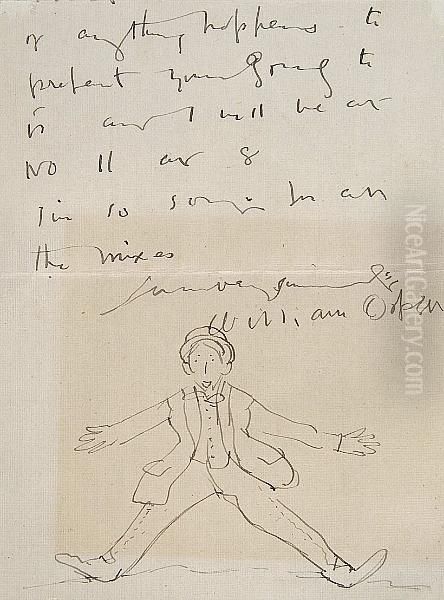 if anything happens to
prefent your going to
is and I will be at
No 11 at 8
I'm so sorry for all
the mixes
yours very sincerely
William Orpen
NiceArtGallery.com